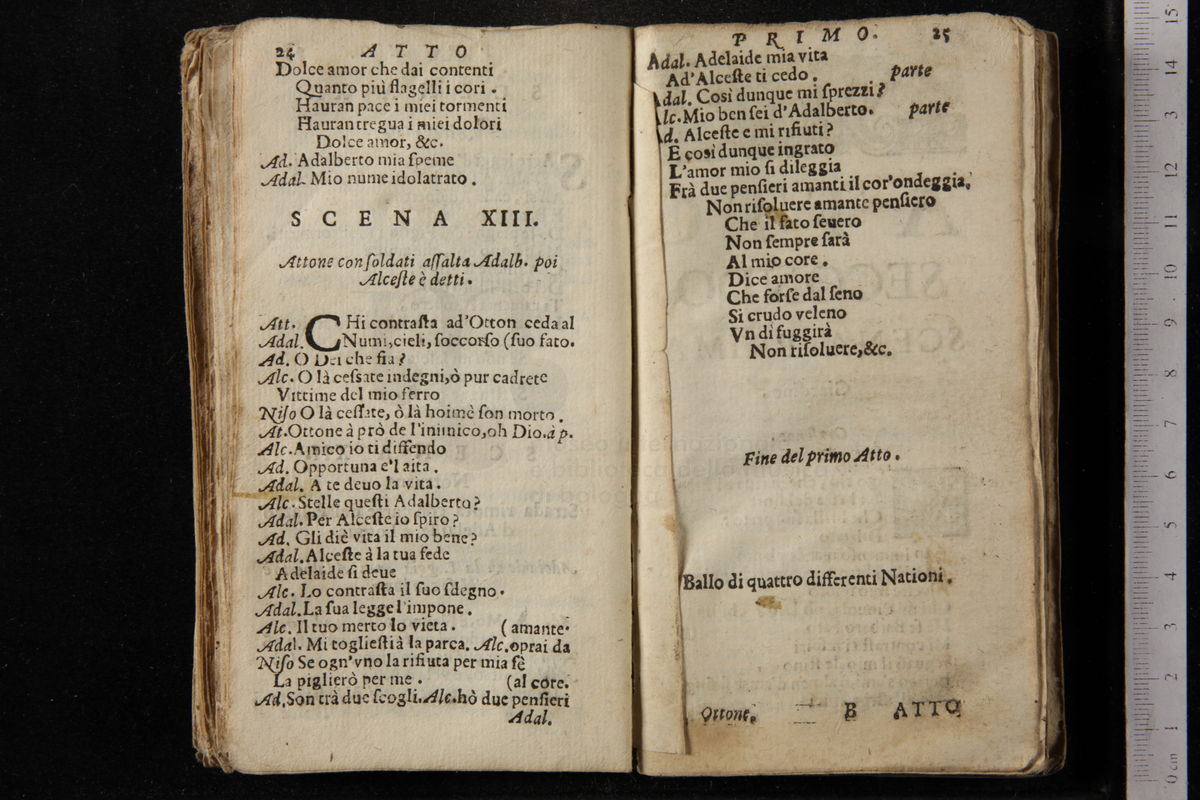 24 ATTO
Dolce amor che dai contenti
Quanto più flagelli i cori .
Hauran pace i miei tormenti
Hauran tregua i miei dolori
Dolce amor, &c.
Ad. Adalberto mia ſpeme
Adal. Mio nume idolatrato .
SCENA XIII.
Attone con ſoldati aſſalta Adalb. poi
Alceſte è detti .
Att. CHi contraſta ad'Otton ceda al
Adal. Numi, cieli, ſoccorſo (ſuo fato.
Ad. O Dei che fia ?
Alc. O là ceſsate indegni, ò pur cadrete
Vittime del mio ferro
Niſo O là ceſſate, ò là hoimè ſon morto .
At. Ottone à prò de l'inimico, oh Dio. à p.
Alc. Amico io ti diffendo
Ad. Opportuna e'l aita .
Adal. A te deuo la vita .
Alc. Stelle queſti Adalberto ?
Adal. Per Alceſte io ſpiro ?
Ad. Gli diè vita il mio bene ?
Adal. Alceſte à la tua fede
Adelaide ſi deue
Alc. Lo contraſta il ſuo ſdegno .
Adal. La ſua legge l'impone .
Alc. Il tuo merto lo vieta . (amante.
Adal. Mi toglieſti à la parca. Alc. oprai da
Niſo Se ogn'vno la rifiuta per mia fè
La piglierò per me . (al core.
Ad. Son trà due ſcogli. Alc. hò due penſieri
Adal.
PRIMO. 25
Adal. Adelaide mia vita
Ad'Alceſte ti cedo . parte
Adal. Così dunque mi ſprezzi ?
Alc. Mio ben ſei d'Adalberto. parte
Ad. Alceſte e mi rifiuti ?
E così dunque ingrato
L'amor mio ſi dileggia
Frà due penſieri amanti il cor'ondeggia.
Non riſoluere amante penſiero
Che il fato ſeuero
Non ſempre ſarà
Al mio core .
Dice amore
Che forſe dal ſeno
Si crudo veleno
Vn dì fuggirà
Non riſoluere, &c.
Fine del primo Atto .
Ballo di quattro differenti Nationi .
Ottone. B ATTO